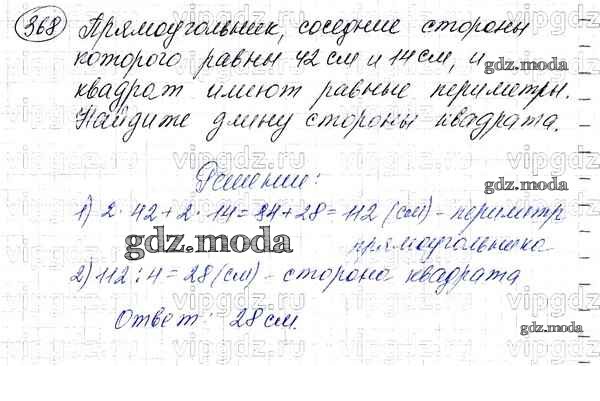 368 Прямоугольник, соседние стороны
которого равны 42 см и 14 см, и
квадрат имеют равные периметры.
Найдите длину стороны квадрата.
Решение:
1) 2 · 42 + 2 · 14 = 84 + 28 = 112 (см) - периметр
прямоугольника.
2) 112 : 4 = 28 (см) - сторона квадрата
Ответ: 28 см.
gdz.moda
gdz.moda
gdz.moda
gdz.moda
vipgdz.ru